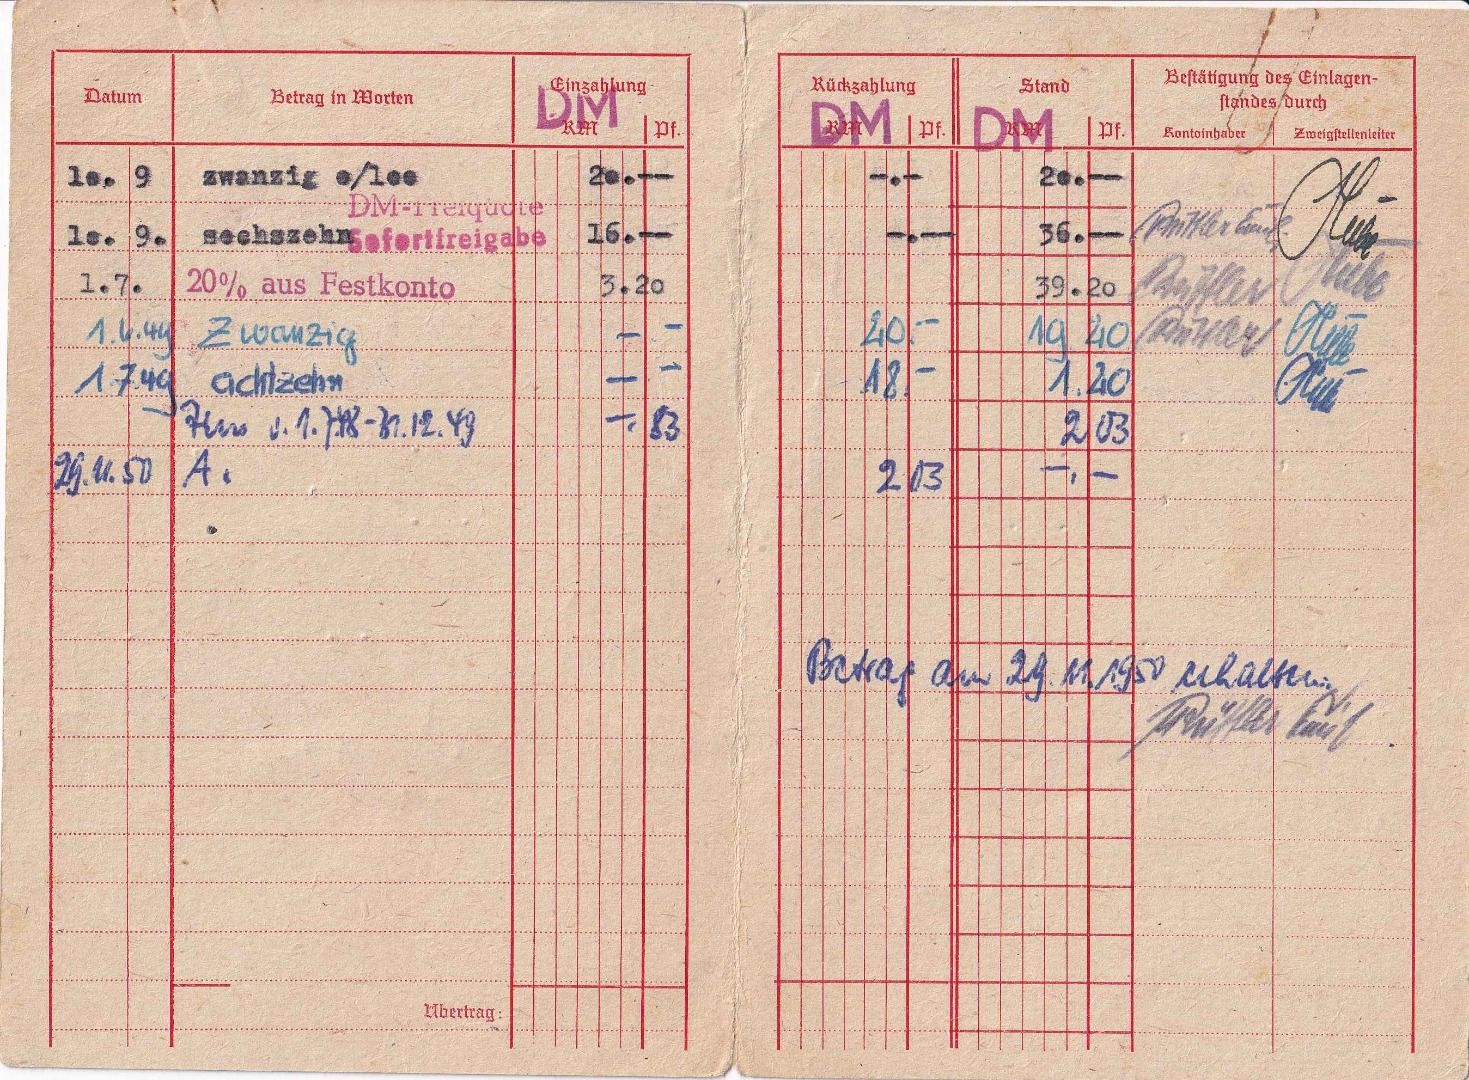 Datum Betrag in Worten Einzahlung Rückzahlung Stand Bestätigung des Einlagen-
standes durch
DM DM DM
RM Pf. RM Pf. RM Pf. Kontoinhaber Zweigstellenleiter
1o. 9 zwanzig o/1oo 2o.-- -.- 2o.--
DM-Freiquote
1o. 9. sechszehn Sofortfreigabe 16.-- -.-- 36.--
1.7. 20% aus Festkonto 3.2o 39.2o
1.6.49 Zwanzig - - 20.- 19 20
1.7.49 achtzehn - - 18.- 1.20
v. 1.7.48-31.12.49 -. 83 2 03
29.11.50 A. 2 03 -.-
Betrag am 29.11.1950 erhalten.
Übertrag: